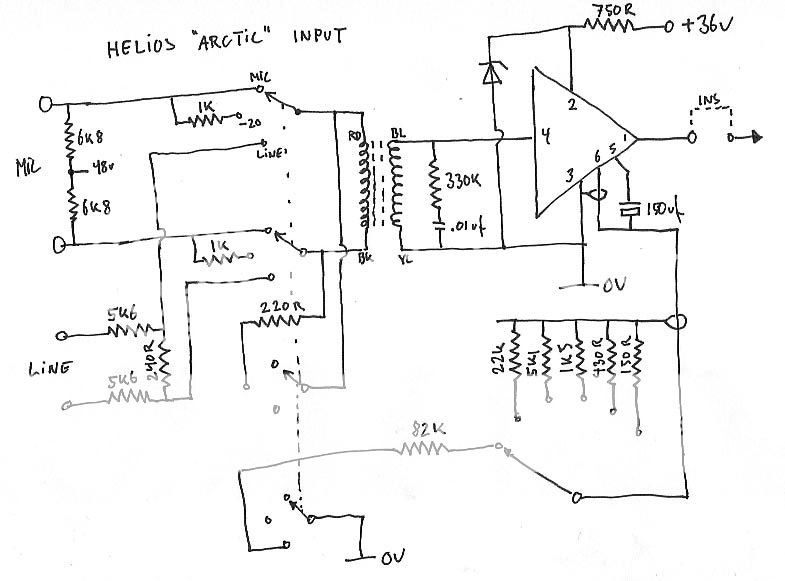 HELIOS "ARCTIC" INPUT
750R
+36V
MIC
1K
-20
2
INS
6K8
MIC
48V
LINE
RD
BL
4
1
5
6
3
330K
6K8
150uf
.01uf
1K
BK
YL
0V
5K6
220R
LINE
240R
5K6
22K
5K1
1K5
430R
150R
82K
0V